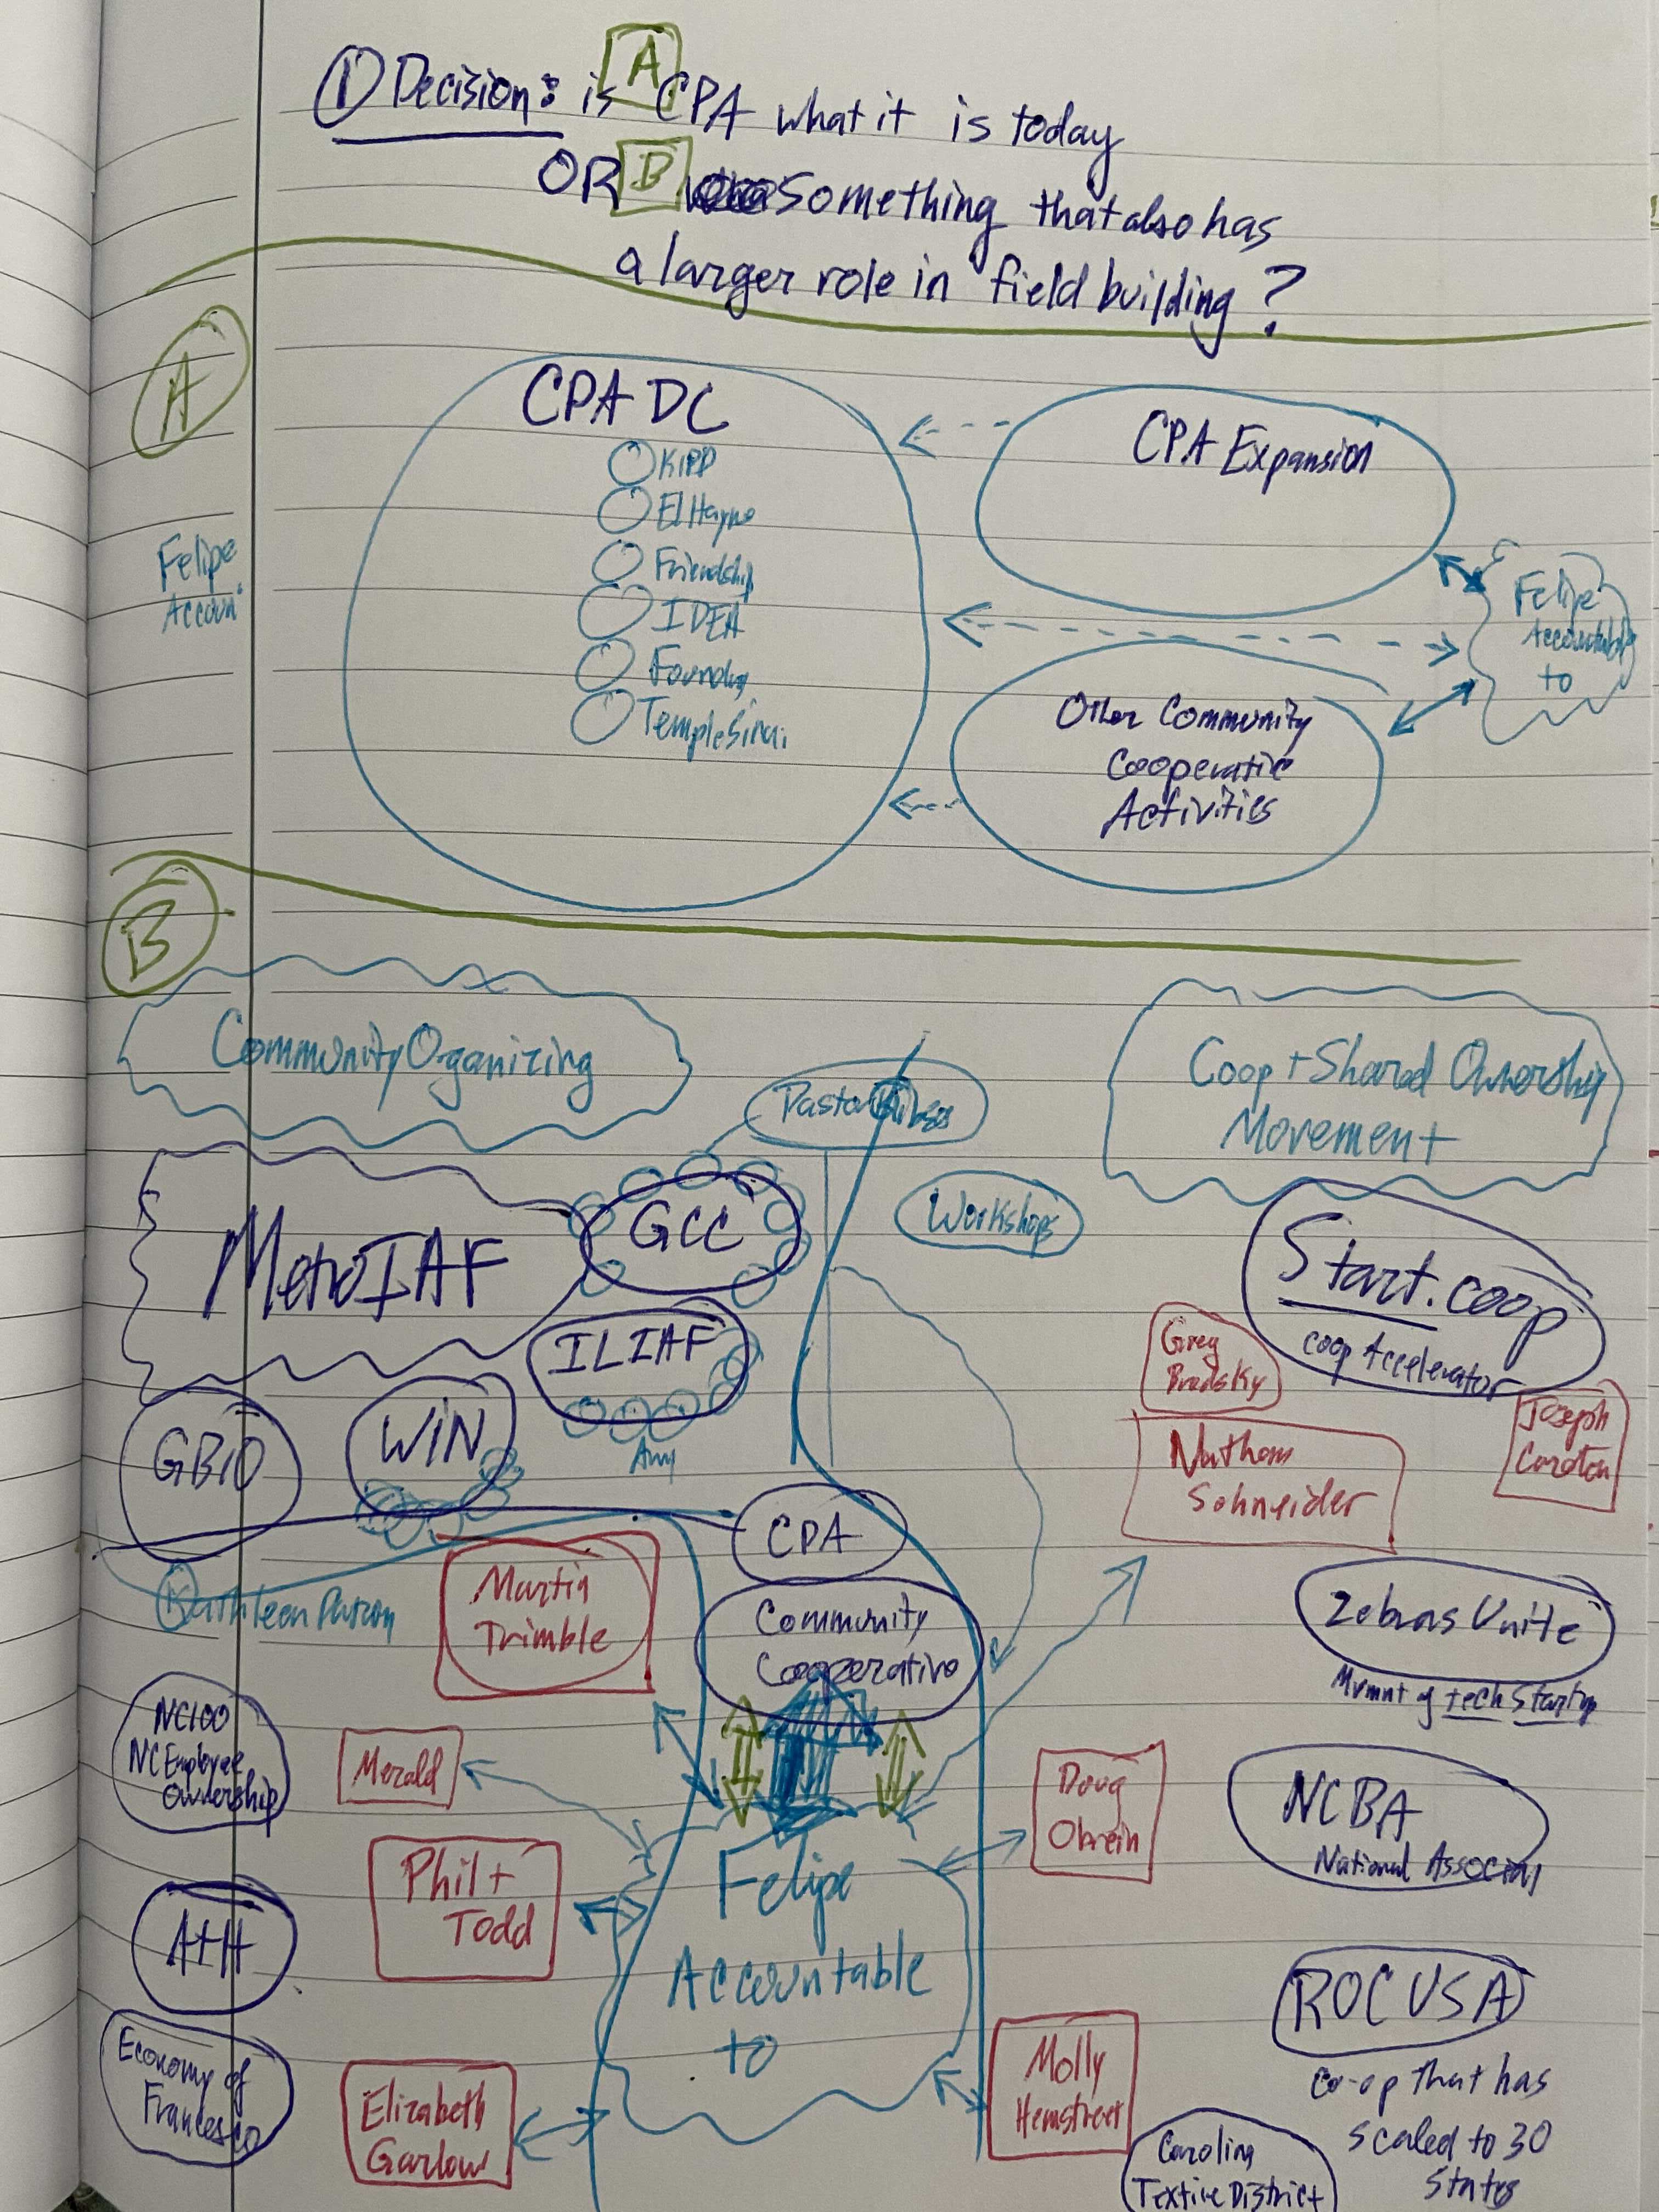 ① Decision: is A CPA what it is today
OR B something that also has
a larger role in field building?
A
CPA DC
KIPP
El Hayne
Friendship
IDEA
Foundry
Temple Sinai
CPA Expansion
Felipe
Accoun
Felipe
Accountable
to
Other Community
Cooperative
Activities
B
Community Organizing
Pastor
Coop + Shared Ownership
Movement
Metro IAF
GCC
Workshops
Start.coop
coop Accelerator
ILIAF
Greg
Brodsky
Joseph
GBIO
WIN
Amy
Nathan
Schneider
CPA
Kathleen
Martin
Trimble
Community
Cooperative
Zebras Unite
Mvmnt of tech Startup
NC100
NC Employee
Ownership
Merald
Doug
Obrein
NCBA
National Associat
Phil +
Todd
Felipe
Accountable
to
A+H
ROC USA
co-op that has
scaled to 30
States
Economy of
Francesco
Elizabeth
Garlow
Molly
Hemstreet
Carolina
Textive District